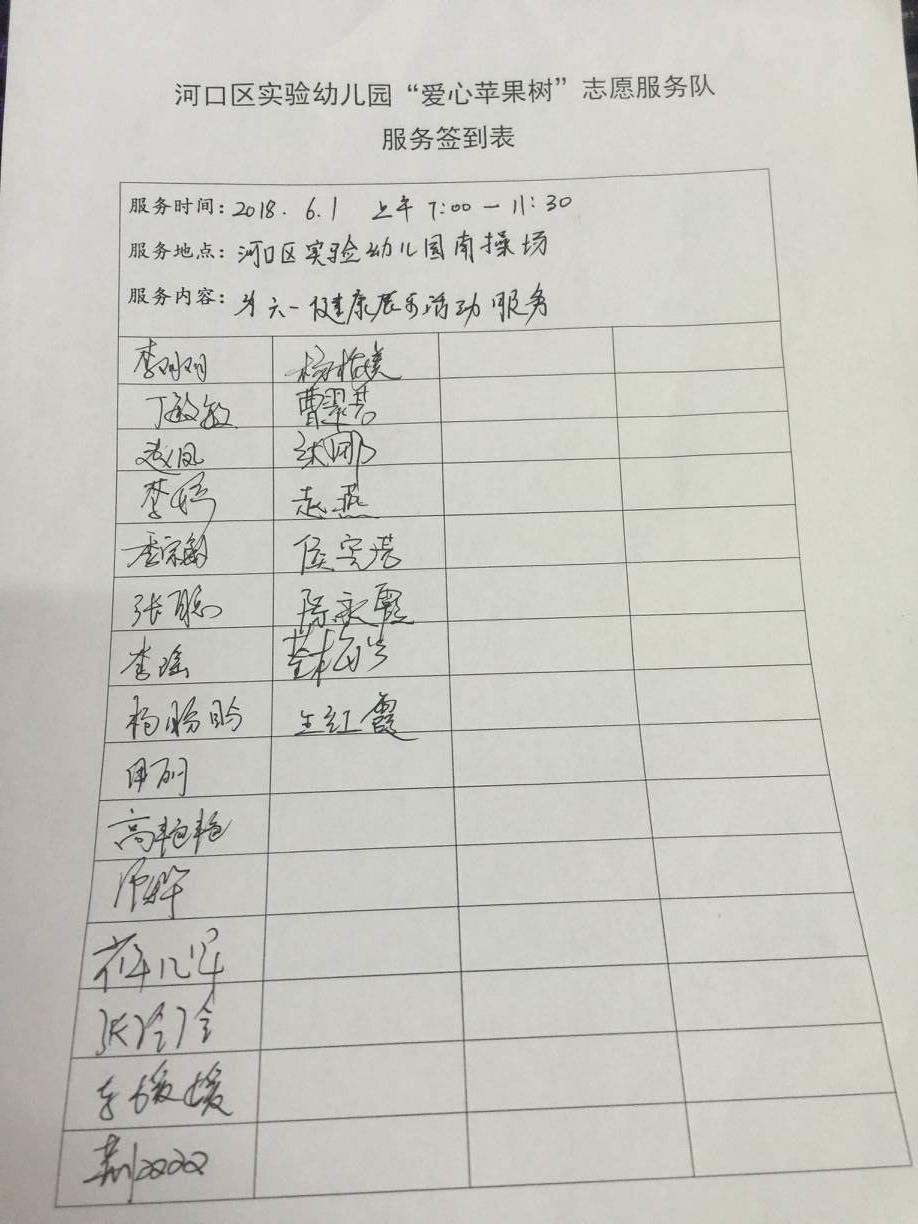 河口区实验幼儿园“爱心苹果树”志愿服务队
服务签到表
服务时间：2018.6.1 上午 7:00—11:30
服务地点：河口区实验幼儿园南操场
服务内容：六一健康展示活动服务
李明明
丁敏敏 曹翠芳
赵凤 张娜
李婷 赵燕
李宗敏
张聪 陈永霞
李瑶
杨盼盼 王红霞
高艳艳
张冷冷
李媛媛
荆双双